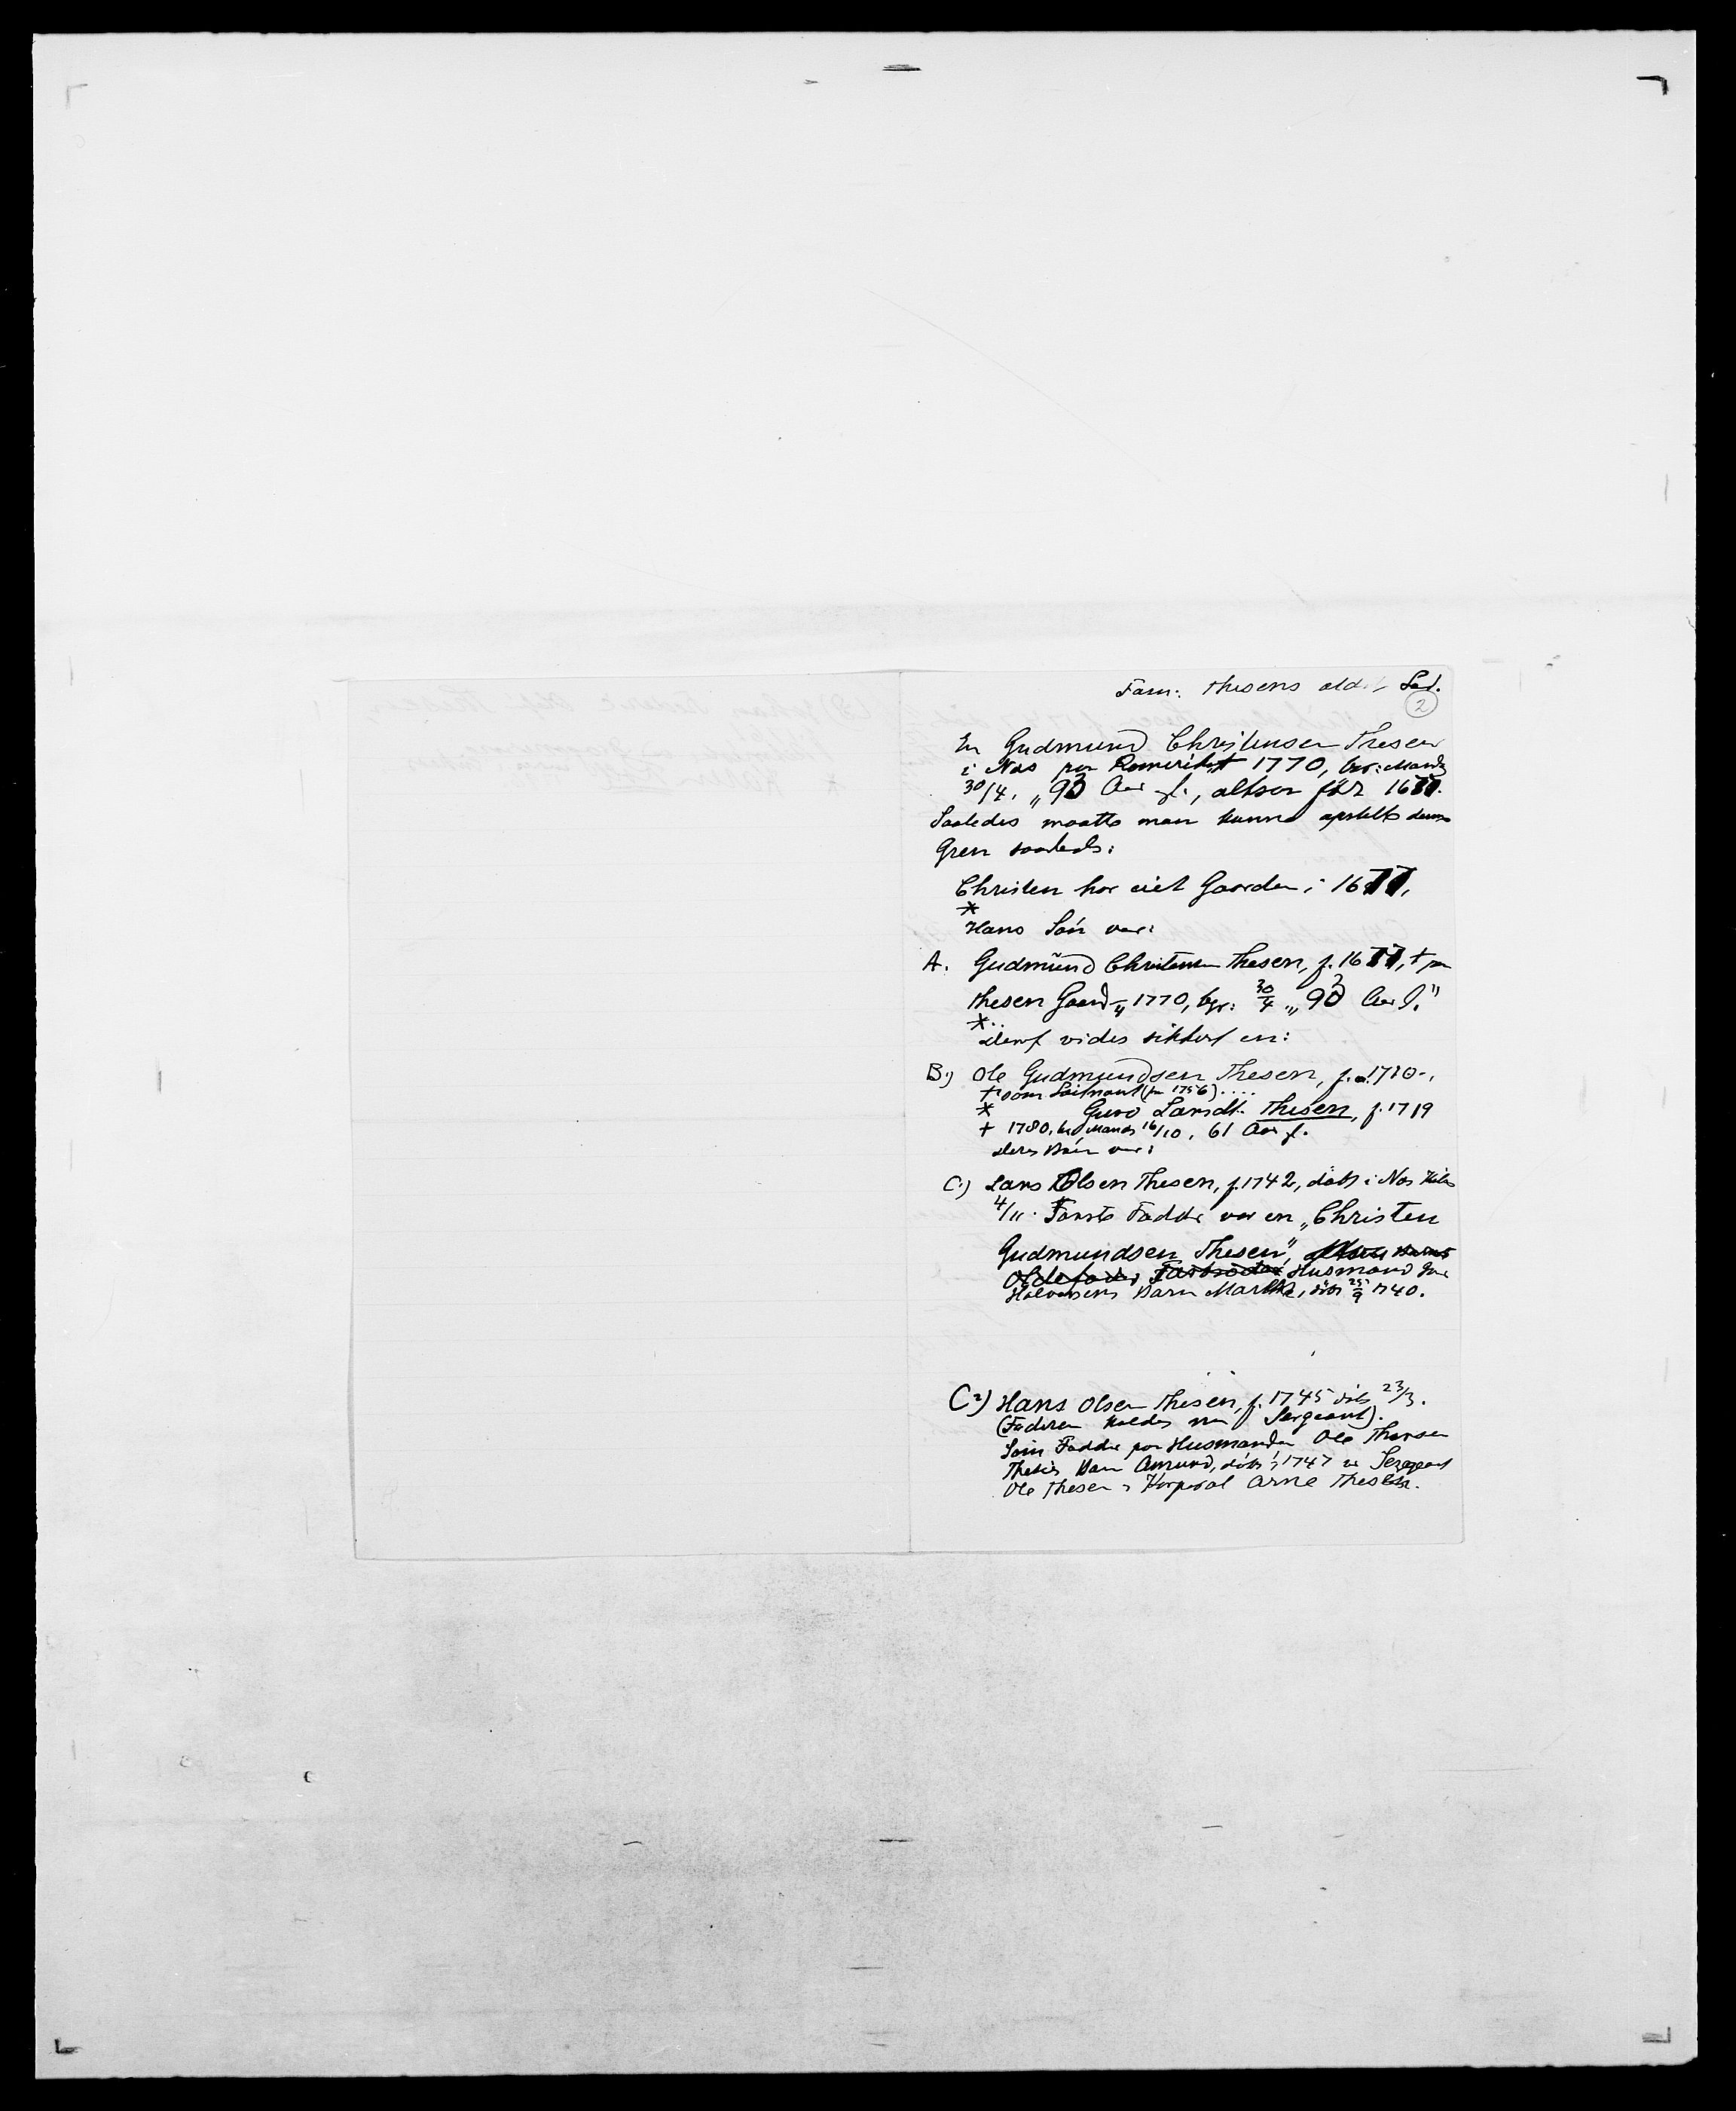 Fam: Thesens eld. Led.
2
En Gudmund Christensen Thesen
i Næs paa Romeriket 1770, begr: Mands
30/4, „93 Aar gl., altsaa født 1677.
Saaledes maatte man kunne opstille denne
Gren saaledes:
Christen har eiet Gaarden i 1677,
*
Hans Søn var:
A. Gudmund Christensen Thesen, f. 1677, † paa
Thesen Gaard 1770, bgr: 30/4 „93 Aar gl."
*
Derpaa vides sikkert en:
B.) Ole Gudmundsen Thesen, f. ca. 1710-,
† som Løitnant (før 1756)....
* Guro Larsdt. Thesen, f. 1719
† 1780, beg Mands 16/10, 61 Aar gl.
Deres Børn var:
C.) Lars Olsen Thesen, f. 1742, døbt i Næs Kirke
4/11. Første Fadder var en „Christen
Gudmundsen Thesen",
Oldefader Farbroder Husmand
Halvorsens Barn Marthe, døbt 25/9 1740.
C2) Hans Olsen Thesen, f. 1745 døbt 23/3.
(Faderen kaldes nu Sergeant).
Som Fadder for Husmanden Ole Thorsen
Thesens Barn Amund, døbt 1747 er Sergeant
Ole Thesen & Korporal Arne Thesen.